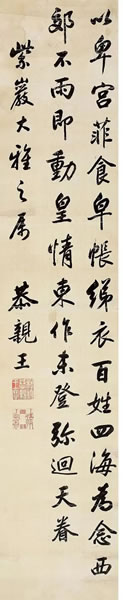 以卑宫菲食皁帳綈衣百姓四海為念西
郊不雨即動皇情東作未登弥迴天眷
紫巖大雅之属 恭親王